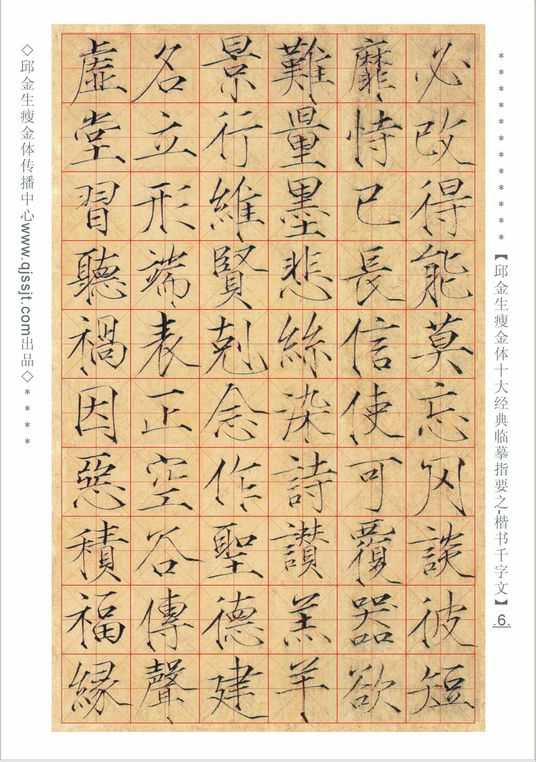 * * * * * * * * * * * * * *【邱金生瘦金体十大经典临摹指要之-楷书千字文】.6.
必改得能莫忘罔談彼短
靡恃己長信使可覆器欲
難量墨悲絲染詩讚羔羊
景行維賢剋念作聖德建
名立形端表正空谷傳聲
虛堂習聽禍因惡積福緣
◇邱金生瘦金体传播中心www.qjssjt.com出品◇ * * * *